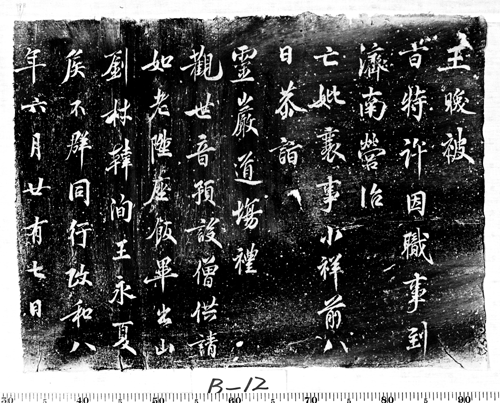 主晚被
旨特許因職事到
濟南營治
亡妣襄事小祥前八
日恭詣
靈巖道場禮
觀世音預設僧供請
如老陞座飯畢出山
劉材韓洵王永夏
矦不群同行政和八
年六月廿有七日
B-12
30 40 50 60 70 80 90